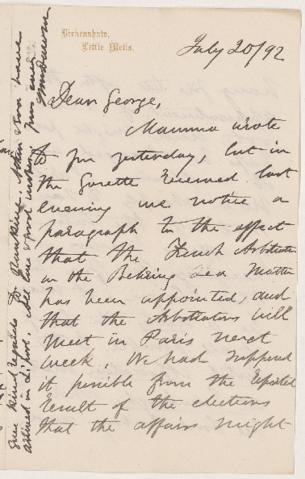 Birkenshaw,
Little Metis.
July 20/92
Dear George,
Mamma wrote
to you yesterday, but in
the Gazette received last
evening we notice a
paragraph to the effect
that the French Arbitrator
in the Behring Sea Matter
has been appointed, and
that the Arbitrators will
meet in Paris next
week. We had supposed
it possible from the reported
result of the elections
that the affairs might
Give kind regards to Dr
arrived in L'pool. All here